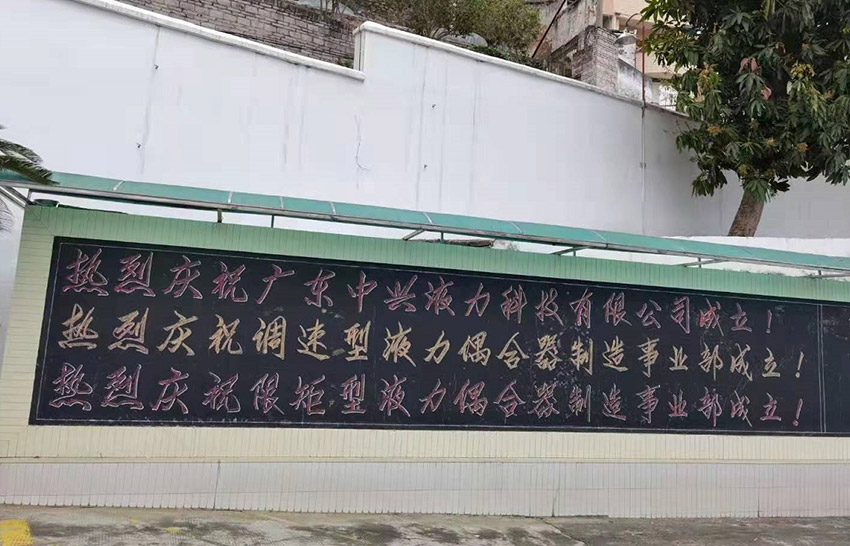 热烈庆祝广东中兴液力科技有限公司成立！
热烈庆祝调速型液力偶合器制造事业部成立！
热烈庆祝限矩型液力偶合器制造事业部成立！